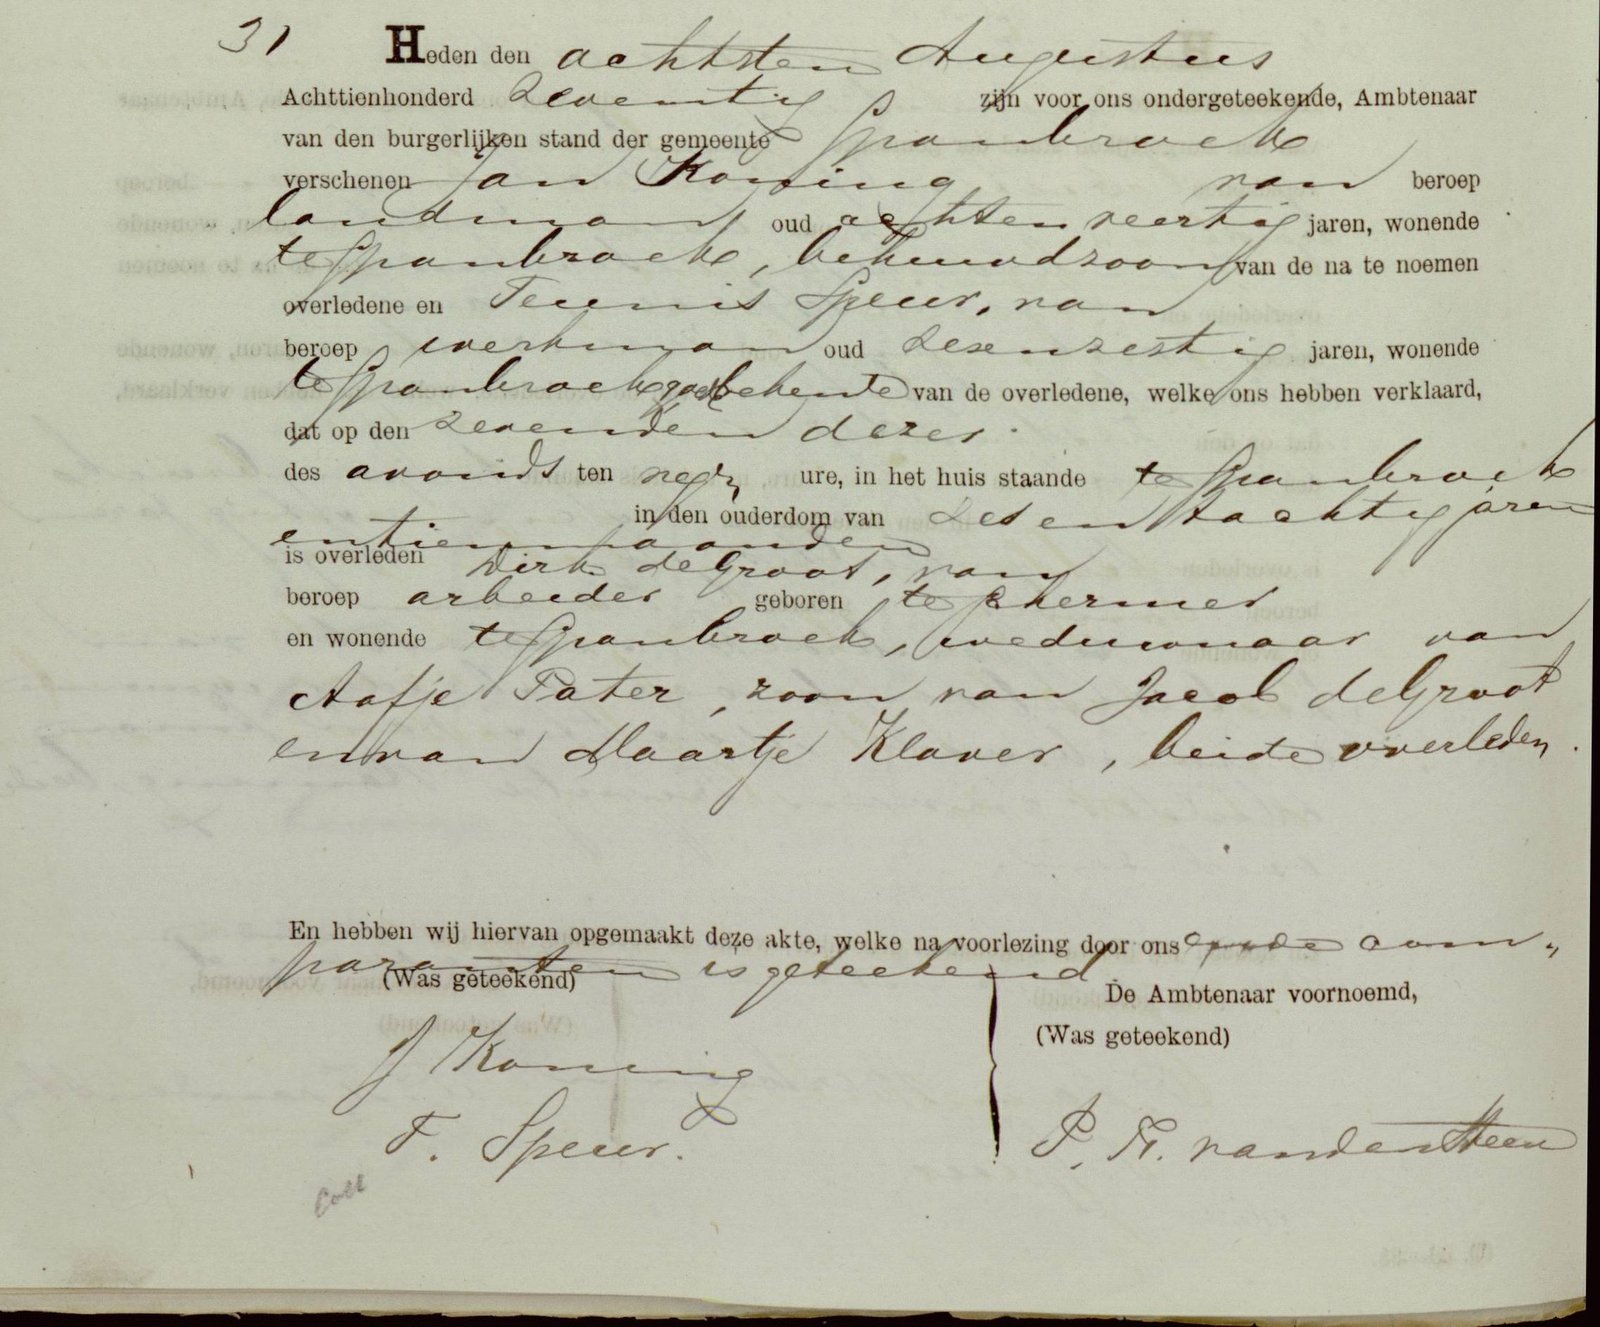 31 Heden den achtsten Augustus
Achttienhonderd Zeventig zijn voor ons ondergeteekende, Ambtenaar
van den burgerlijken stand der gemeente Spanbroek
verschenen Jan Koning van beroep
landman oud achtenveertig jaren, wonende
te Spanbroek, behuwdzoon van de na te noemen
overledene en Teunis Speur, van
beroep werkman oud zesenzestig jaren, wonende
te Spanbroek goede bekende van de overledene, welke ons hebben verklaard,
dat op den zevenden dezer
des avonds ten negen ure, in het huis staande te Spanbroek
in den ouderdom van zesentachtig jaren
en tien maanden
is overleden Dirk de Groot, van
beroep arbeider geboren te Schermer
en wonende te Spanbroek, weduwnaar van
Aafje Pater, zoon van Jacob de Groot
en van Maartje Klaver, beide overleden.
En hebben wij hiervan opgemaakt deze akte, welke na voorlezing door ons en de com„
paranten is geteekend
(Was geteekend)
De Ambtenaar voornoemd,
(Was geteekend)
J Koning
T. Speur.
P. N. vanden Steen
Coll